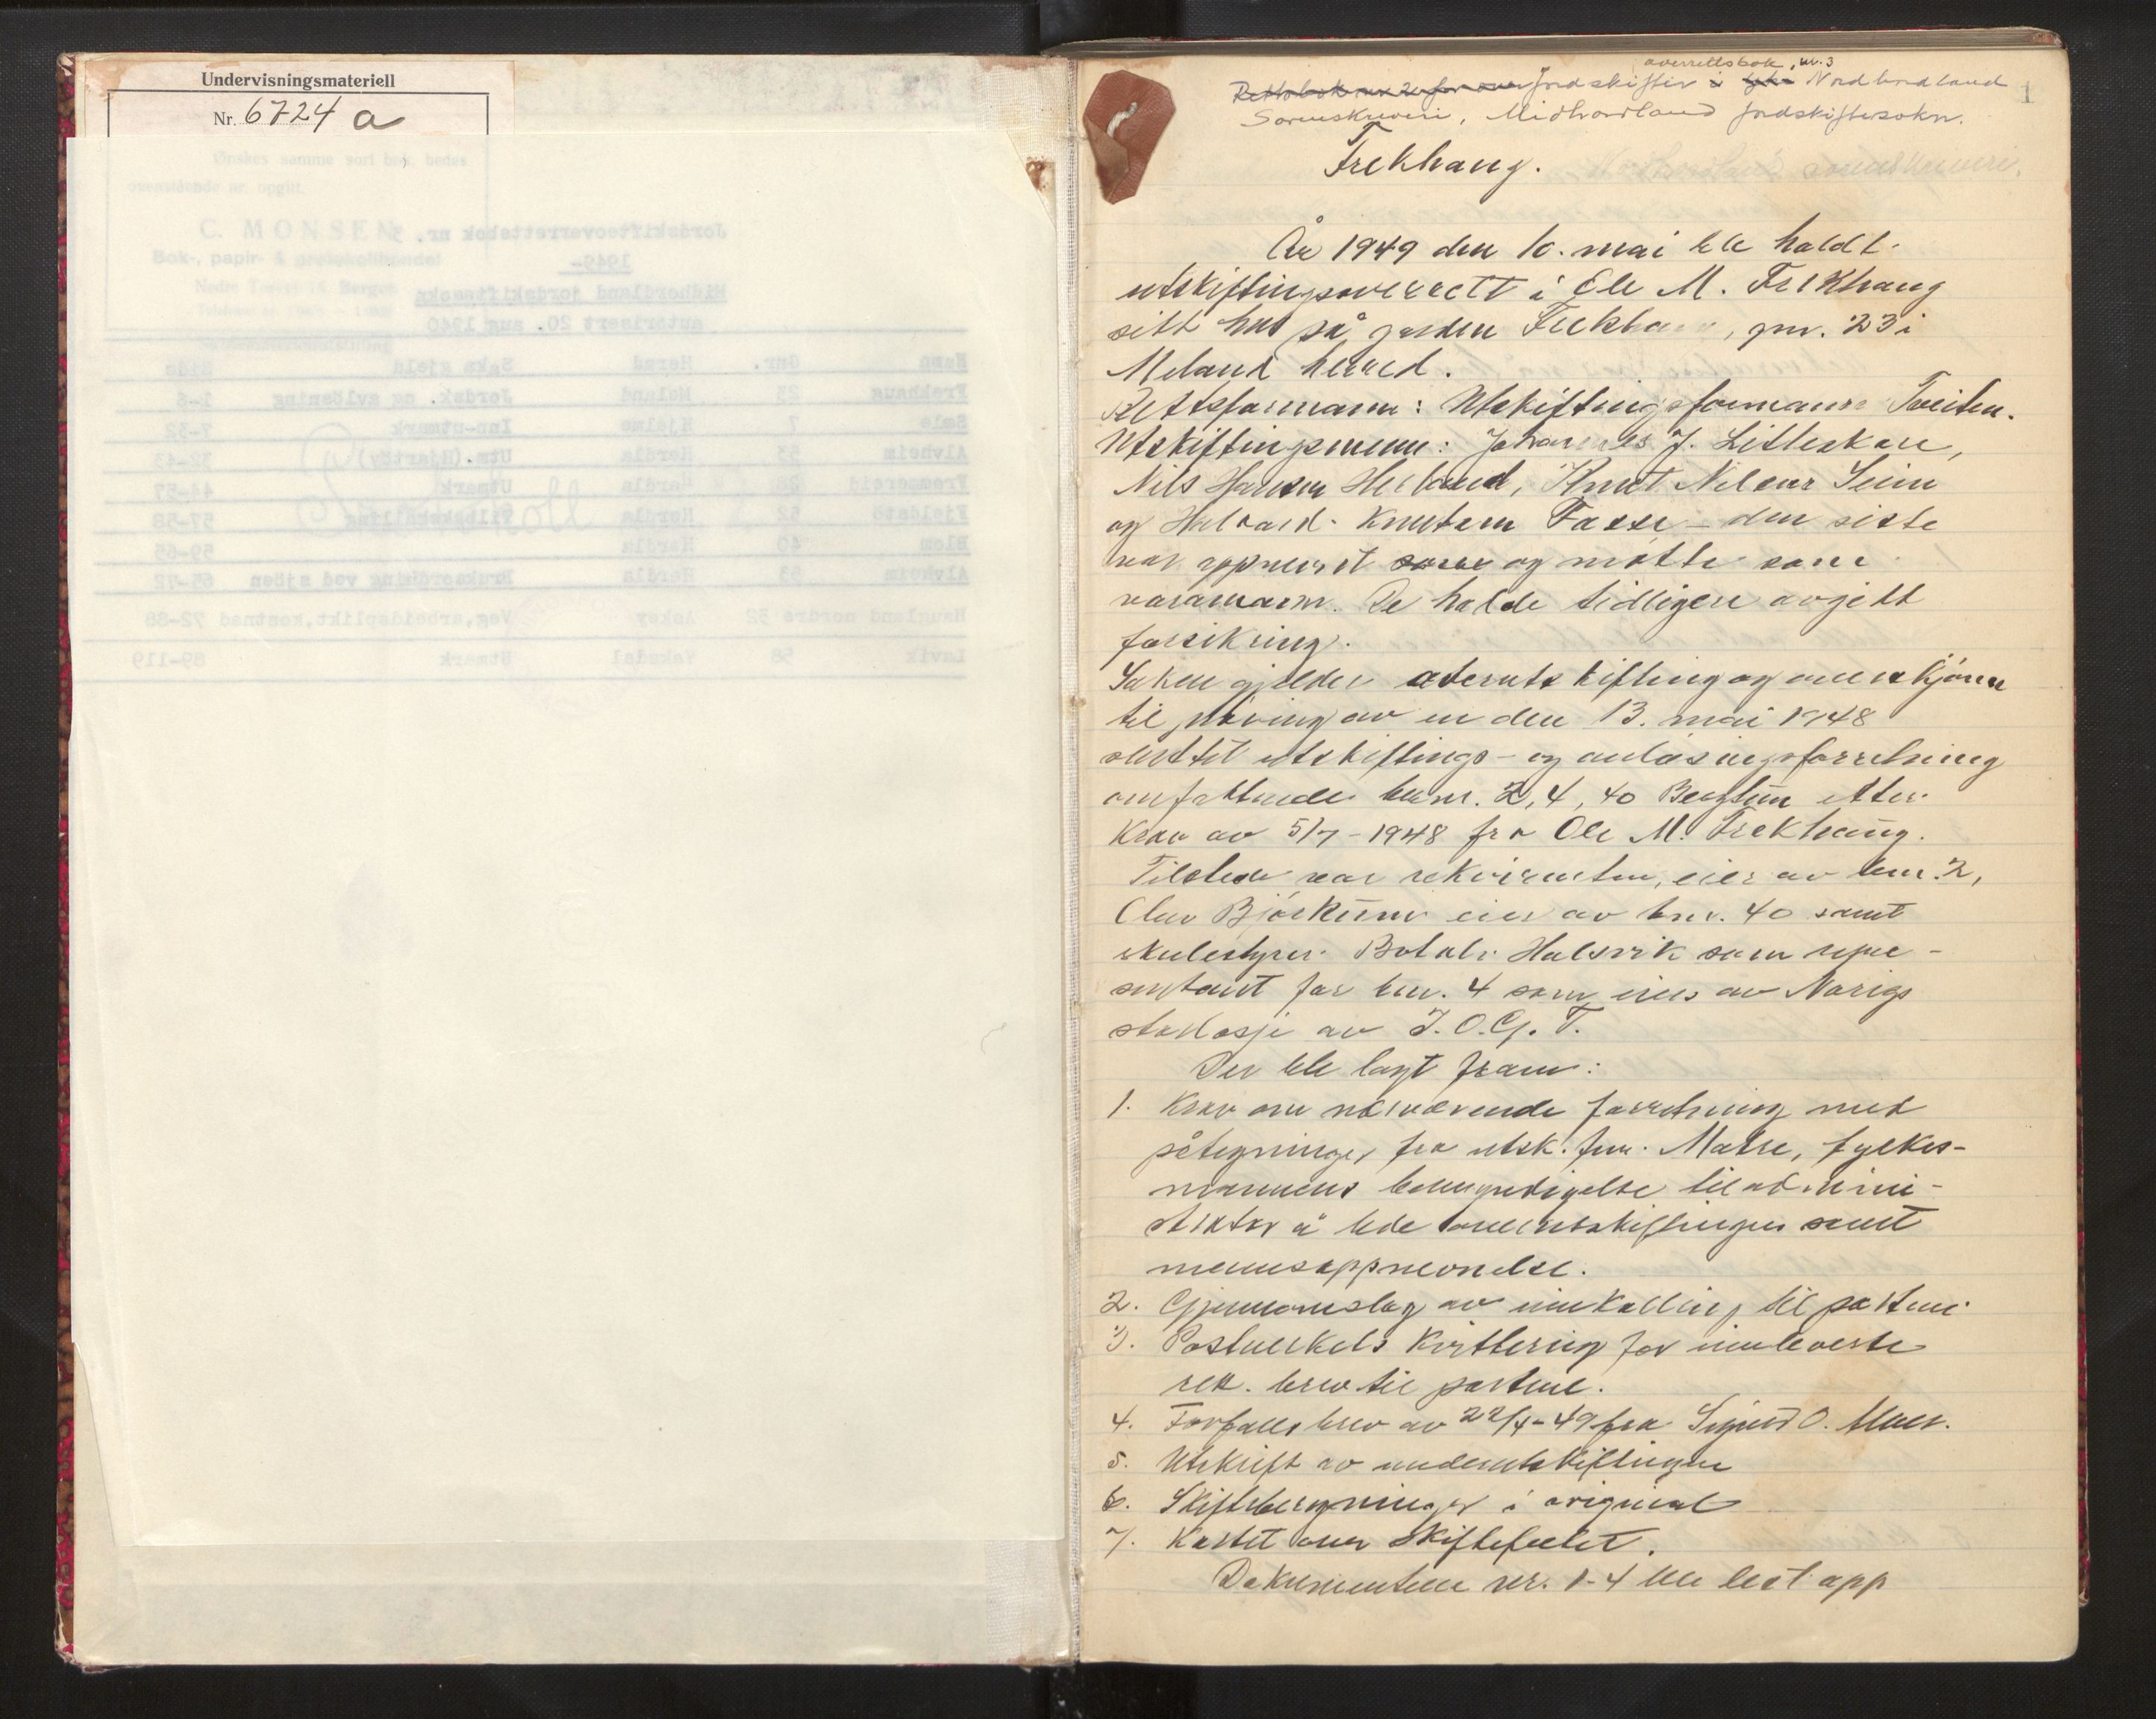 Undervisningsmateriell
Nr. 6724 a
Ønskes samme sort bok, bedes
ovenstående nr. opgitt.
C. MONSEN
Bok-, papir- & protokollhandel
Jordskifteoverrettsbok nr. 3
1949-
Midhordland jordskiftesokn
autorisert 20. aug 1940
Namn Gnr. Herad Saka gjeld Side
Frekhaug 23 Meland Jordsk. og avlösning 1-6
Sæle 7 Hjelme Inn-utmark 7-32
Alvheim 53 Herdla Utm. (Hjartöy) 32-43
Fremmereid 28 Herdla Utmark 44-57
Fjeldstö 52 Herdla Tilbakekalling 57-58
Blom 40 Herdla 59-65
Alvheim 53 Herdla Bruksordning ved sjöen 65-72
Haugland nordre 52 Askøy Veg, arbeidsplikt, kostnad 72-88
Lavik 58 Vaksdal Utmark 89-119
overrettsbok, nr. 3
Rettsbok nr 2 for over jordskifter i Nordhordland 1
Sorenskriveri, Midhordland jordskiftesokn.
Frekhaug.
År 1949 den 10. mai ble holdt
utskiftingsoverrett i Ole M. Frekhaug
sitt hus på garden Frekhaug, gnr. 23 i
Meland herred.
Rettsformann: Utskiftingsformann Tveiten.
Utskiftingsmenn: Johannes J. Litleskare,
Nils Hansen Herland, Knut Nilsen Seim
og Halvard Knutsen Fosse - den siste
var oppnevnt som og møtte som
varamann. De hadde tidligere avgitt
forsikring.
Saken gjelder overutskifting og overskjønn
til prøving av en den 13. mai 1948
sluttet utskiftings- og avløsningsforretning
omfattende bnr. 2, 4, 40 Bergtun etter
krav av 5/7-1948 fra Ole M. Frekhaug.
Tilstede var rekvirenten, eier av bnr. 2,
Olav Bjørkum eier av bnr. 40 samt
skulestyrer Botolv Halsvik som repre-
sentant for bnr. 4 som eies av Norigs
storlosje av I.O.G.T.
Der ble lagt fram:
1. Krav om nærværende forretning med
påtegninger fra utsk. fm. Matre, fylkes-
mannens bemyndigelse til admini-
strator å lede overutskiftingen samt
mennsoppnevnelse.
2. Gjennomslag av innkalling til partene
3. Postverkets kvittering for innleverte
rek. brev til partene.
4. Forfallsbrev av 22/4-49 fra Sigurd O.
5. Utskrift av underutskiftingen
6. Skifteberegninger i original
7. Kartet over skiftefeltet.
Dokumentene nr. 1-4 ble lest opp